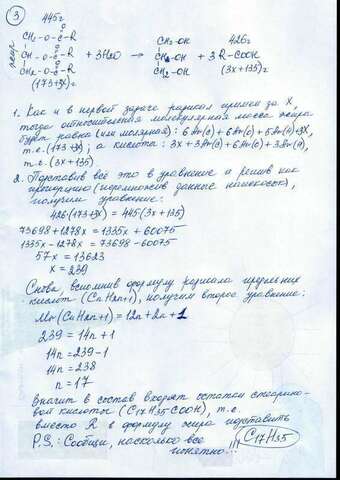 3
445г
426г
жир
CH2-O-C-R
CH-O-C-R + 3H2O → CH-OH + 3R-COOH
CH2-O-C-R
CH2-OH
CH2-OH
(173+3x)г
(3x+135)г
1. Как и в первой задаче радикал примем за X,
тогда относительная молекулярная масса жира
будет равна (или молярная): 6Ar(C)+6Ar(O)+5Ar(H)+3X,
т.е. (173+3x); а кислота: 3x+3Ar(C)+6Ar(O)+3Ar(H),
т.е. (3x+135)
2. Подставив всё это в уравнение и решив как
пропорцию (перемножив данные наискосок),
получим уравнение:
426(173+3x) = 445(3x+135)
73698+1278x = 1335x+60075
1335x-1278x = 73698-60075
57x = 13623
x = 239
Снова, вспомнив формулу радикала предельных
кислот (CnH2n+1), получим второе уравнение:
Mr(CnH2n+1) = 12n+2n+1
239 = 14n+1
14n = 239-1
14n = 238
n = 17
Значит в состав входят остатки стеарино-
вой кислоты (C17H35COOH), т.е.
вместо R в формулу жира подставить
C17H35
P.S.: Сообщи, насколько всё
понятно...!!!